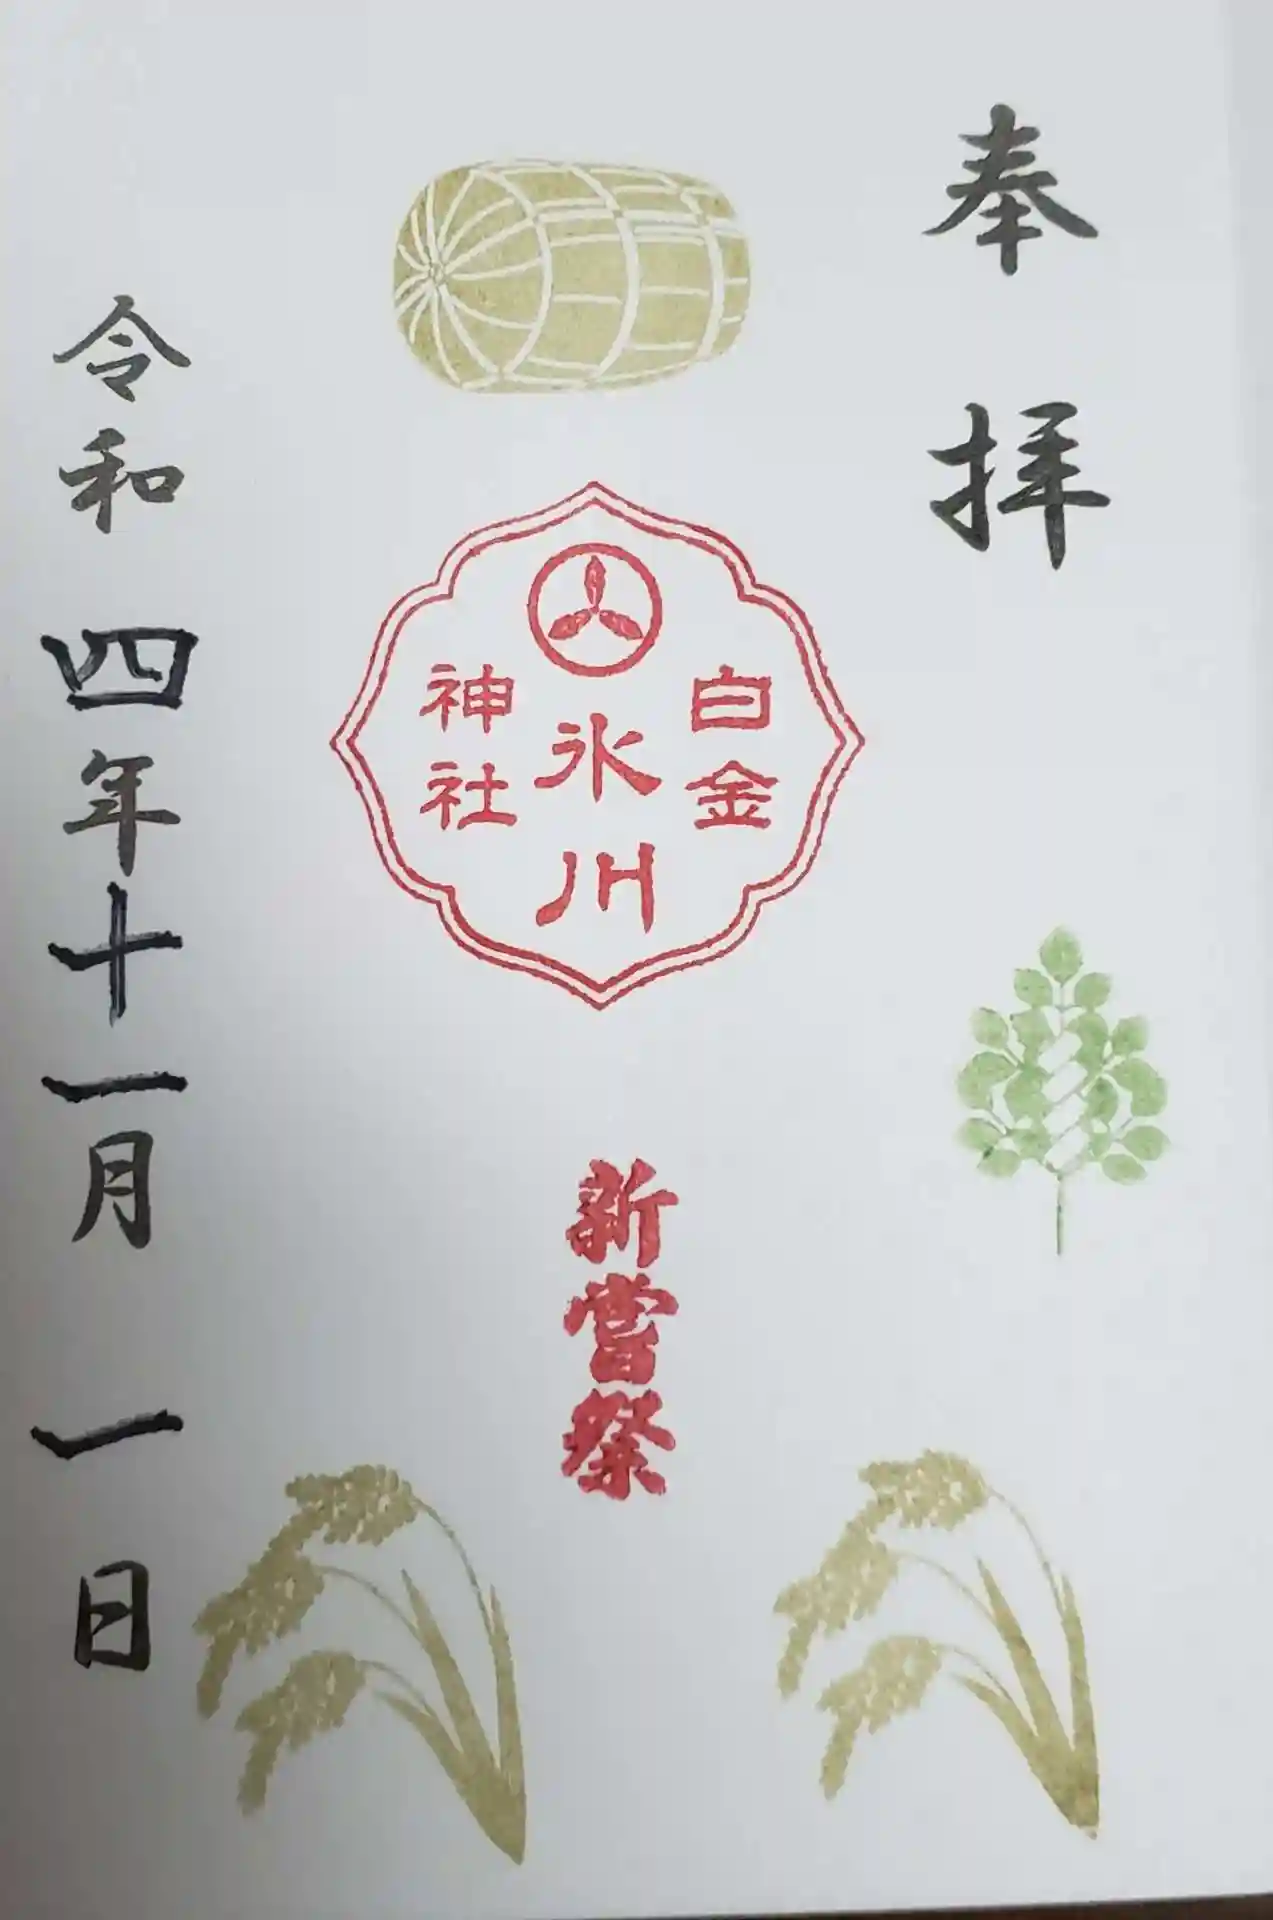 奉拝
白金
氷川
神社
新嘗祭
令和四年十一月一日